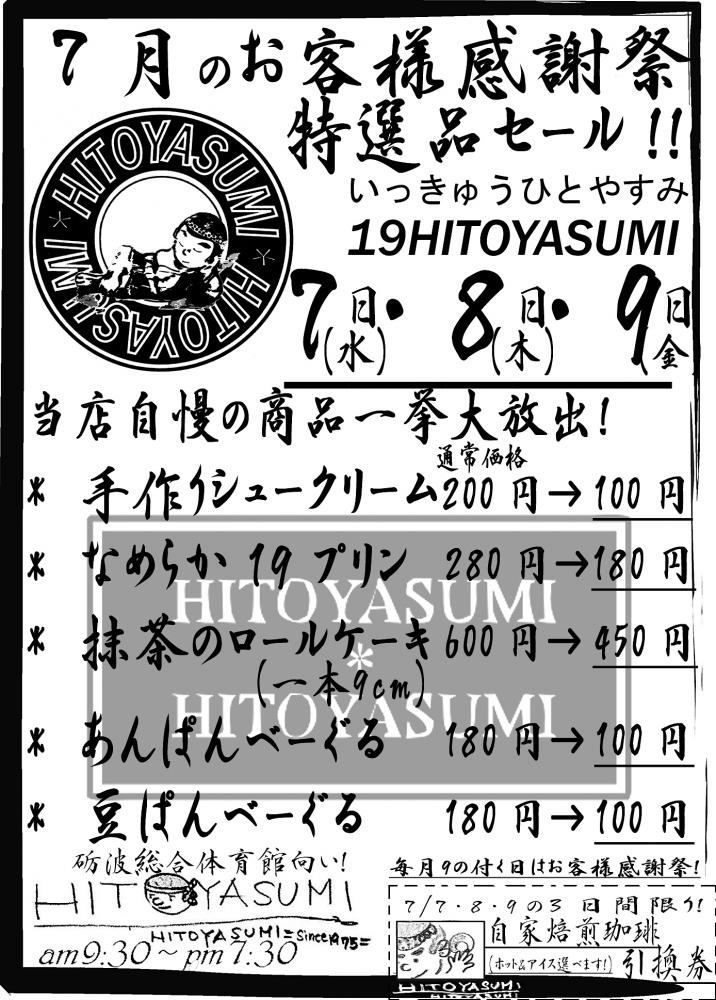 7月のお客様感謝祭
特選品セール!!
HITOYASUMI * HITOYASUMI *
いっきゅうひとやすみ
19HITOYASUMI
7日(水)・8日(木)・9日(金)
当店自慢の商品一挙大放出!
通常価格
* 手作りシュークリーム200円→100円
* なめらか19プリン 280円→180円
HITOYASUMI
* 抹茶のロールケーキ600円→450円
*
(一本9cm)
HITOYASUMI
* あんぱんべーぐる 180円→100円
* 豆ぱんべーぐる 180円→100円
砺波総合体育館向い!
HITOYASUMI
HITOYASUMI=Since1975=
am9:30~pm7:30
毎月9の付く日はお客様感謝祭!
7/7・8・9の3日間限り!
自家焙煎珈琲
(ホット&アイス選べます!)引換券
HITOYASUMI
HITOYASUMI